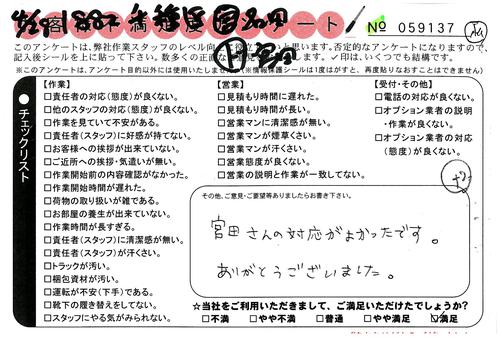 № 059137
このアンケートは、弊社作業スタッフのレベル向上に役立てたいと思います。否定的なアンケートになりますので、
記入後シールを上に貼って下さい。数多くの正直な
✓印は、いくつでも結構です。
※このアンケートは、アンケート目的以外には使用いたしません。(※情報保護シールは1度はがすと、再度貼りなおすことはできません)
●チェックリスト
【作業】
□責任者の対応(態度)が良くない。
□他のスタッフの対応(態度)が良くない。
□作業を見ていて不安がある。
□責任者(スタッフ)に好感が持てない。
□お客様への挨拶が出来ていない。
□ご近所への挨拶・気遣いが無い。
□作業開始前の内容確認がなかった。
□作業開始時間が遅れた。
□荷物の取り扱いが雑である。
□お部屋の養生が出来ていない。
□作業時間が長すぎる。
□責任者(スタッフ)に清潔感が無い。
□責任者(スタッフ)が汗くさい。
□トラックが汚い。
□梱包資材が汚い。
□運転が不安(下手)である。
□靴下の履き替えをしてない。
□スタッフにやる気がみられない。
【営業】
□見積もり時間に遅れた。
□見積もり時間が長い。
□営業マンに清潔感が無い。
□営業マンが煙草くさい。
□営業マンが汗くさい。
□営業態度が良くない。
□営業の説明と作業が一致してない。
【受付・その他】
□電話の対応が良くない。
□オプション業者の説明
・作業が良くない。
□オプション業者の対応
(態度)が良くない。
その他、ご意見・ご要望等ありましたらお書き下さい。
宮田さんの対応がよかったです。
ありがとうございました。
☆当社をご利用いただきまして、ご満足いただけたでしょうか?
□不満 □やや不満 □普通 □やや満足 ☑満足